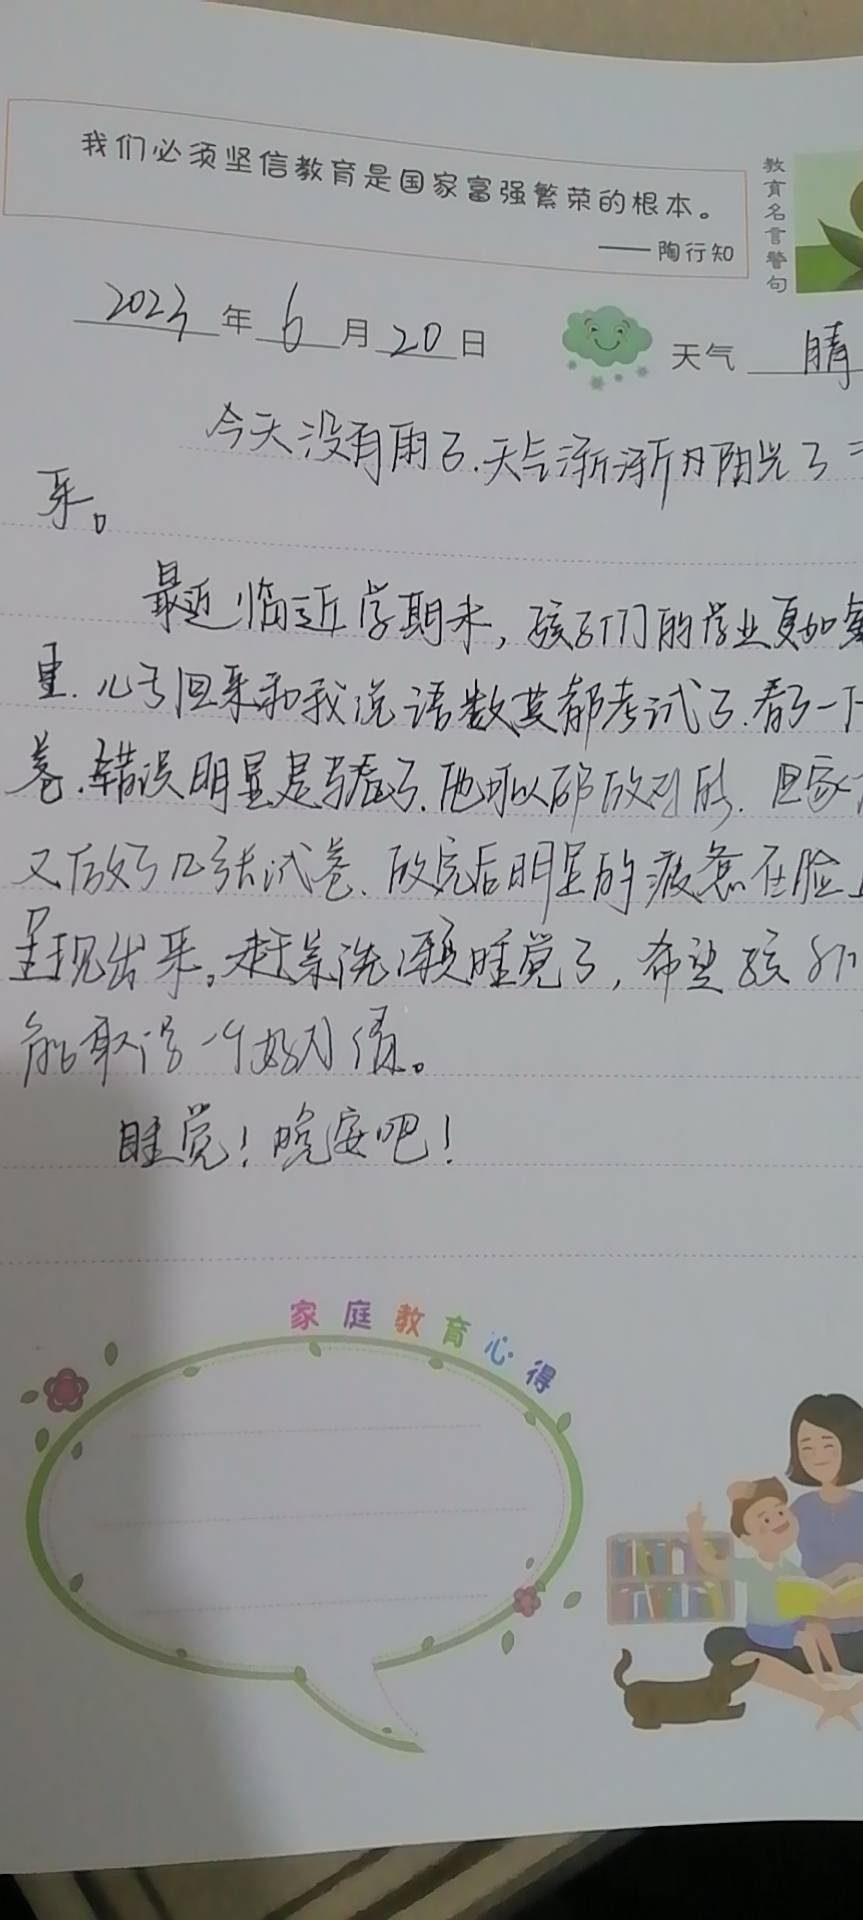 我们必须坚信教育是国家富强繁荣的根本。
——陶行知
教育名言警句
2023年6月20日 天气 晴
今天没有雨了.天气渐渐阳光了
来。
最近临近学期末,孩子们的学业更加
重.儿子回来和我说语数英都考试了.看了一下
卷.错误明显是马虎了.他可以
又做了几张试卷.做完后明显的疲惫在脸上
呈现出来。赶紧洗漱睡觉了,希望孩子们
能取得一个好成绩。
睡觉!晚安吧!
家庭教育心得